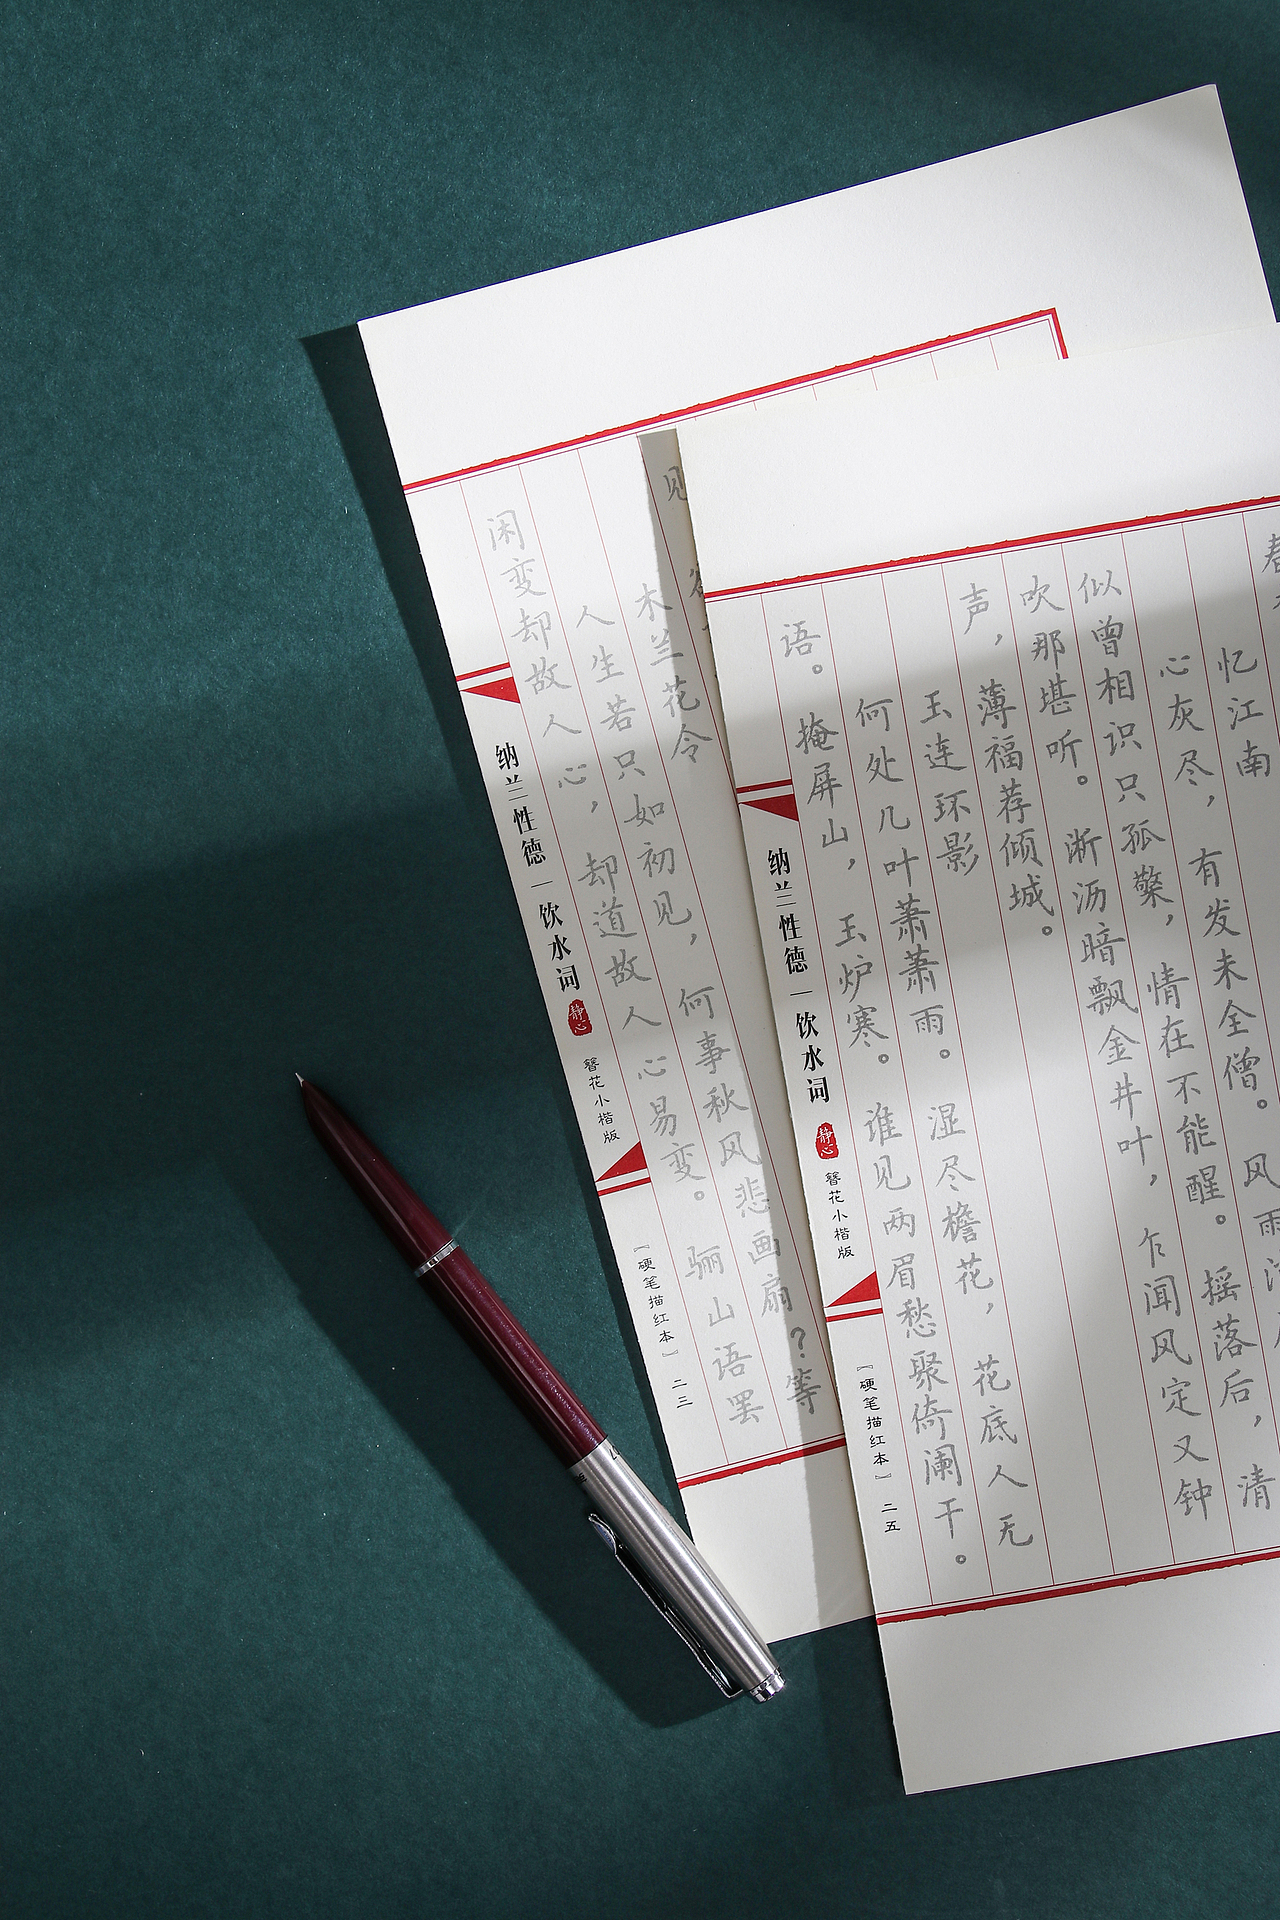 见
木兰花令
人生若只如初见，何事秋风悲画扇？等
闲变却故人心，却道故人心易变。骊山语罢
纳兰性德｜饮水词
静心
簪花小楷版
『硬笔描红本』
二三
春
忆江南
心灰尽，有发未全僧。风雨消
似曾相识只孤檠，情在不能醒。摇落后，清
吹那堪听。淅沥暗飘金井叶，乍闻风定又钟
声，薄福荐倾城。
玉连环影
何处几叶萧萧雨。湿尽檐花，花底人无
语。掩屏山，玉炉寒。谁见两眉愁聚倚阑干。
纳兰性德｜饮水词
静心
簪花小楷版
『硬笔描红本』
二五